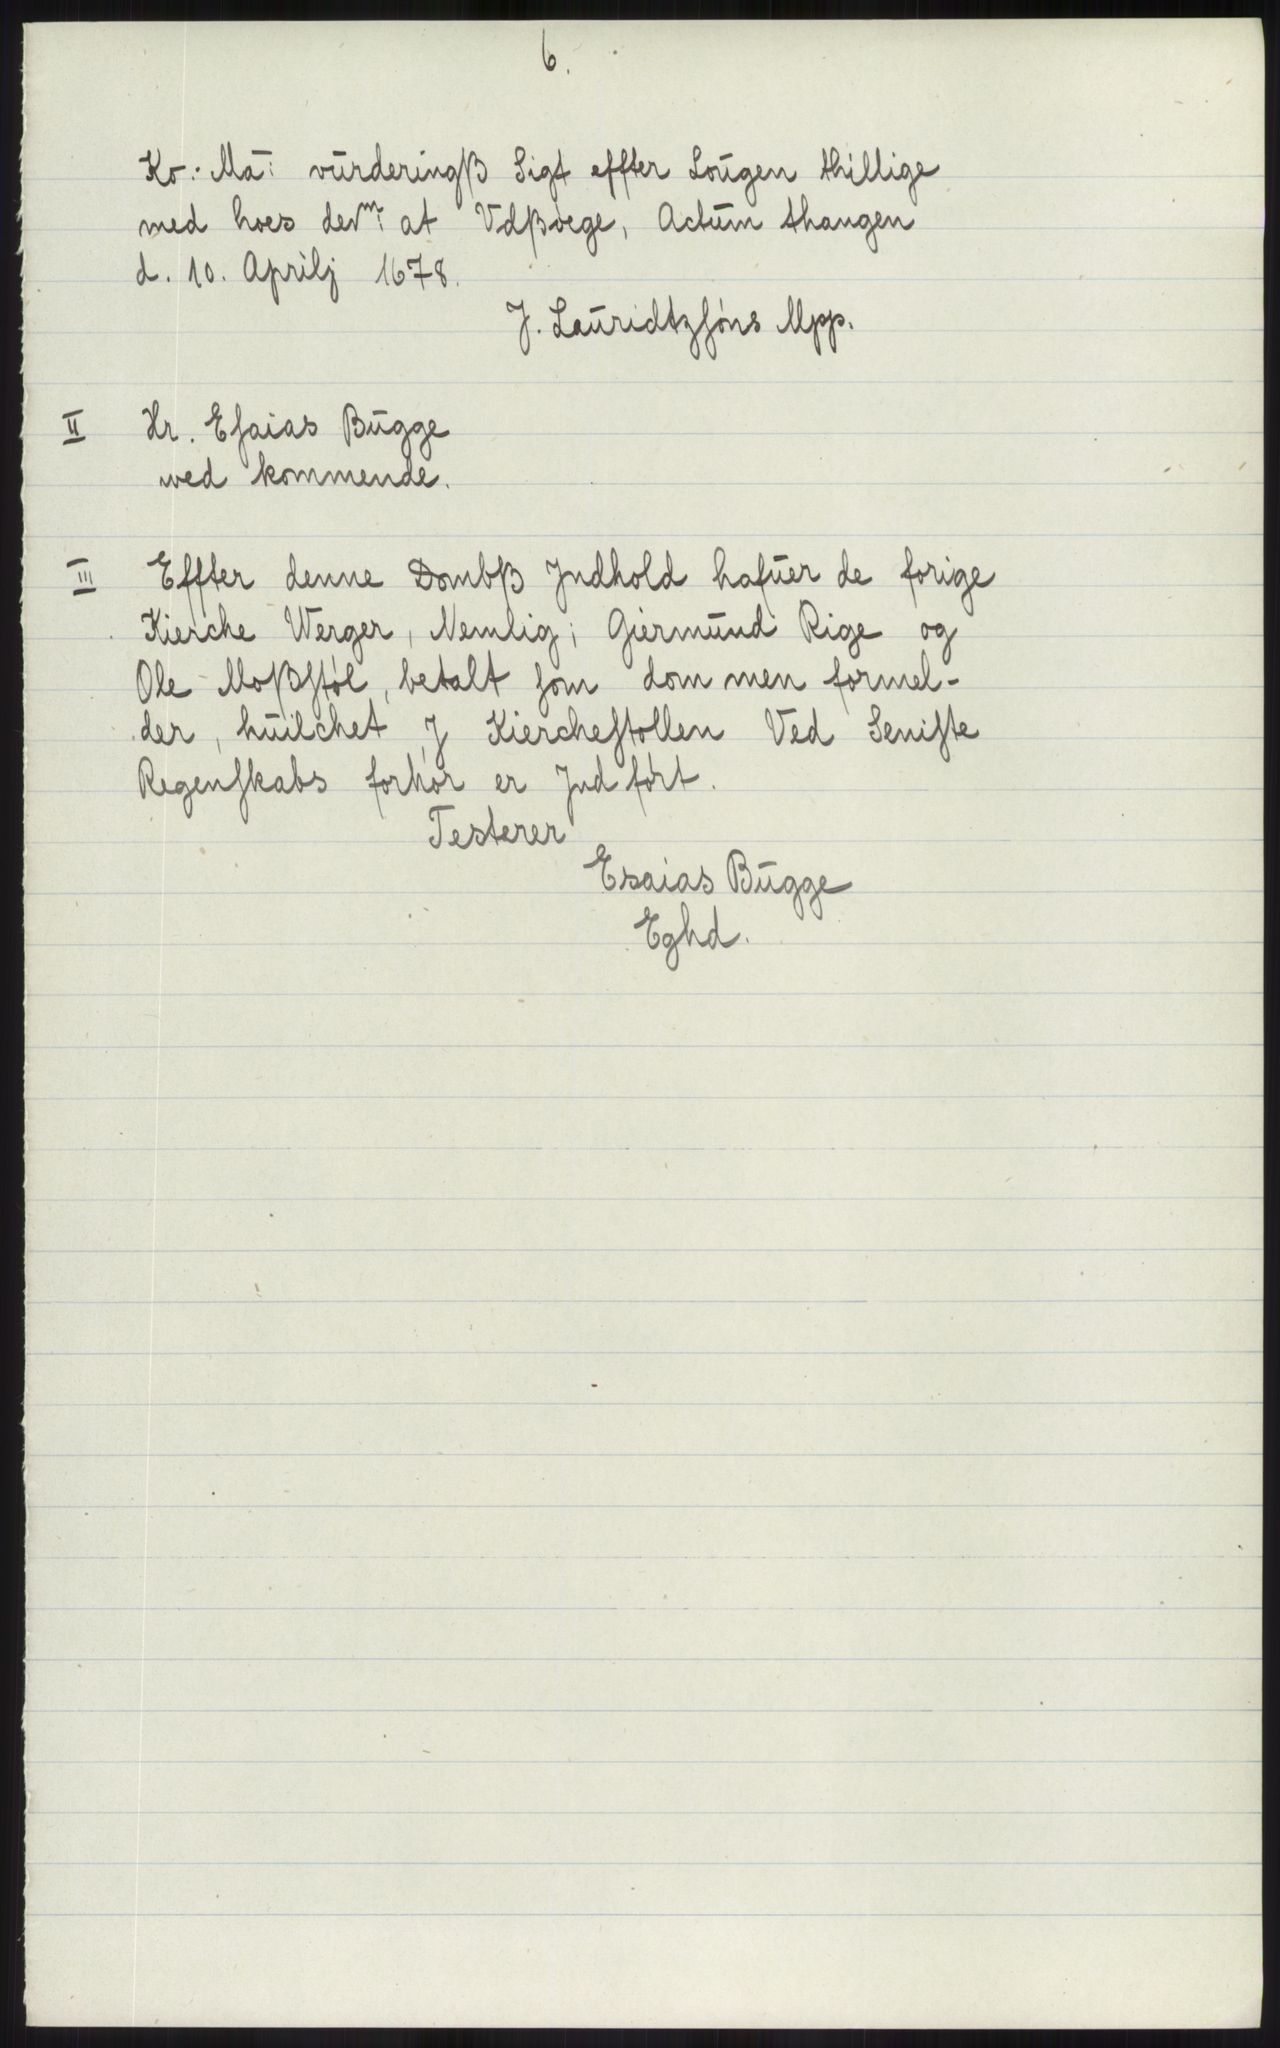 6.
Ko: Ma: vurderingß Sigt effter Loŭgen thillige
med hoes dem: at Vdßøege, Actŭm thangen
d. 10. Aprilj 1678.
J. Laŭridtzſóns Mpp.
II Hr. Eſaias Bŭgge
wed kommende.
III Effter denne Dombß Jndhold hafŭer de forige
Kierche Werger, Nemlig; Giermŭnd Rige og
Ole Moßſtól, betalt ſom dommen formel-
der, hŭilchet J Kiercheſtollen Ved Seniſte
Regenſkabs forhór er Jndfórt.
Testerer
Esaias Bŭgge
Eghd.